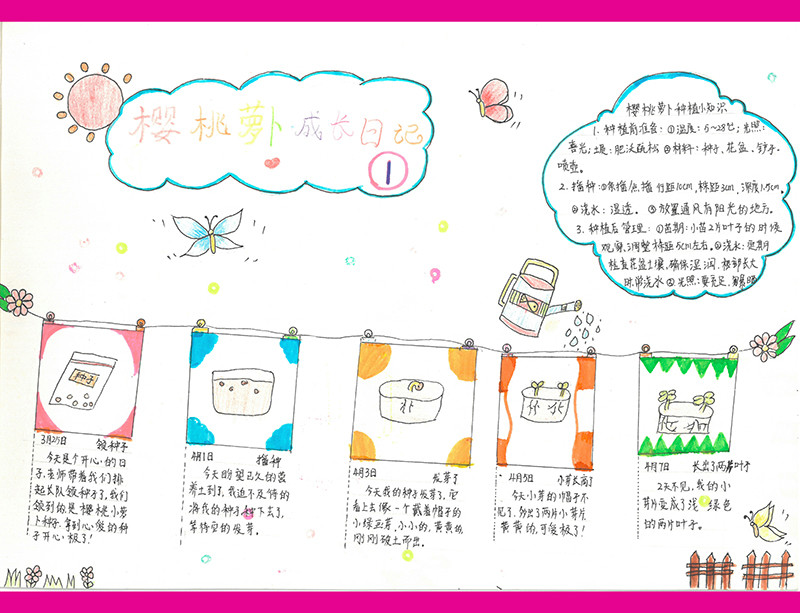 樱桃萝卜成长日记
1
樱桃萝卜种植小知识
1. 种植前准备：①温度：5~28℃；光照：
喜光；土质：肥沃疏松 ②材料：种子、花盆、铲子、
喷壶。
2. 播种：行距10cm，株距3cm，深度1.5cm。
②浇水：湿透。 ③放置通风有阳光的地方。
3. 种植后管理：①苗期：小苗2片叶子的时候
观察，调整株距5cm左右。②浇水：定期
检查花盆土壤，确保湿润，根部长大
时常浇水 ③光照：要充足，
种子
3月25日 领种子
今天是个开心的日
子，老师带着我们排
起长队领种子了，我们
领到的是樱桃小萝
卜种子，拿到心爱的种
子开心极了！
4月1日 播种
今天盼望已久的营
养土到了，我迫不及待的
将我的种子种下去了，
等待它的发芽。
4月3日 发芽了
今天我的种子发芽了，它
看上去像一个戴着帽子的
小绿豆芽，小小的，黄黄的，
刚刚破土而出。
4月5日 小芽长高了
今天小芽的帽子不
见了，分出了两片小芽片，
黄黄的，可爱极了！
4月7日 长出了两片叶子
2天不见，我的小
芽片变成了浅绿色
的两片叶子。